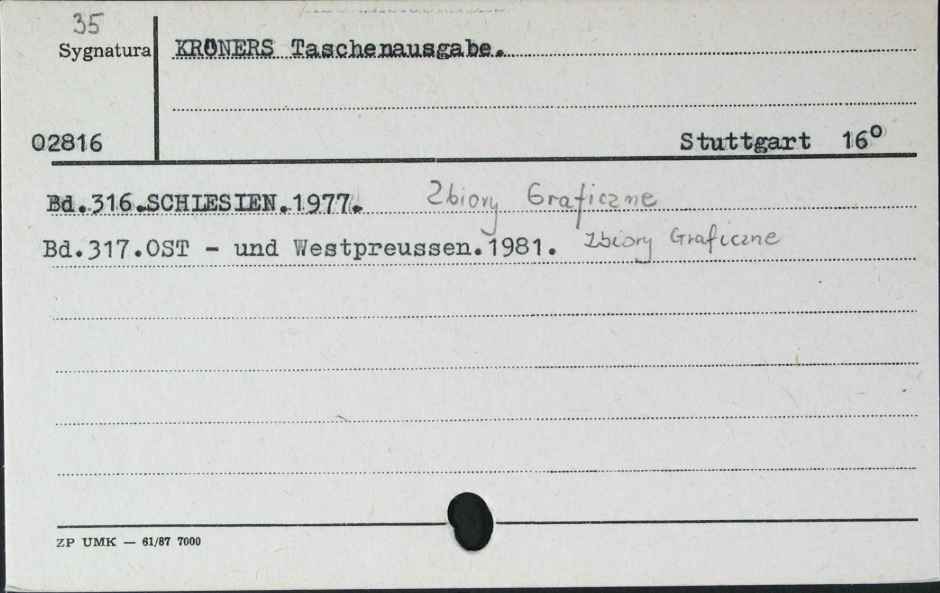 35
Sygnatura KRÖNERS Taschenausgabe.
02816 Stuttgart 16°
Bd.316.SCHIESIEN.1977. Zbiory Graficzne
Bd.317.OST - und Westpreussen.1981. Zbiory Graficzne
ZP UMK — 61/87 7000